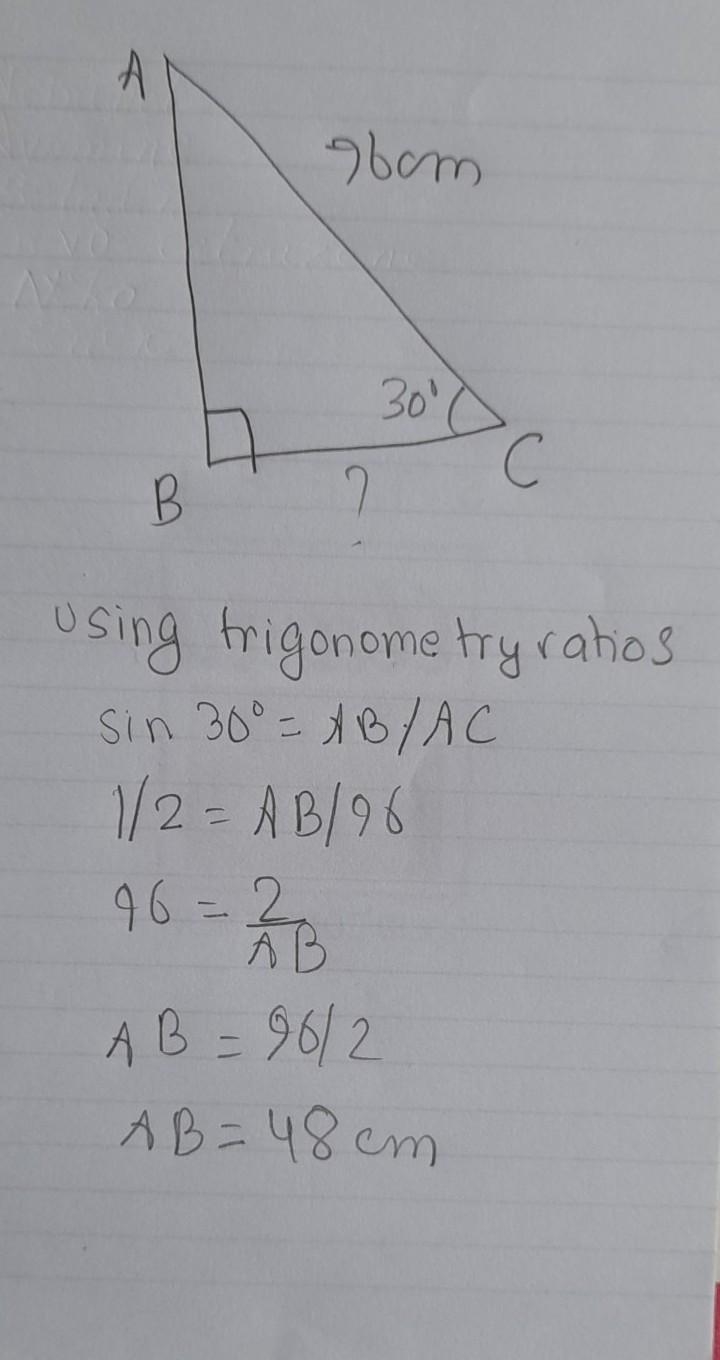 A
96cm
30'
C
B
?
using trigonometry ratios
sin 30° = AB/AC
1/2 = AB/96
96 = 2/AB
AB = 96/2
AB = 48 cm